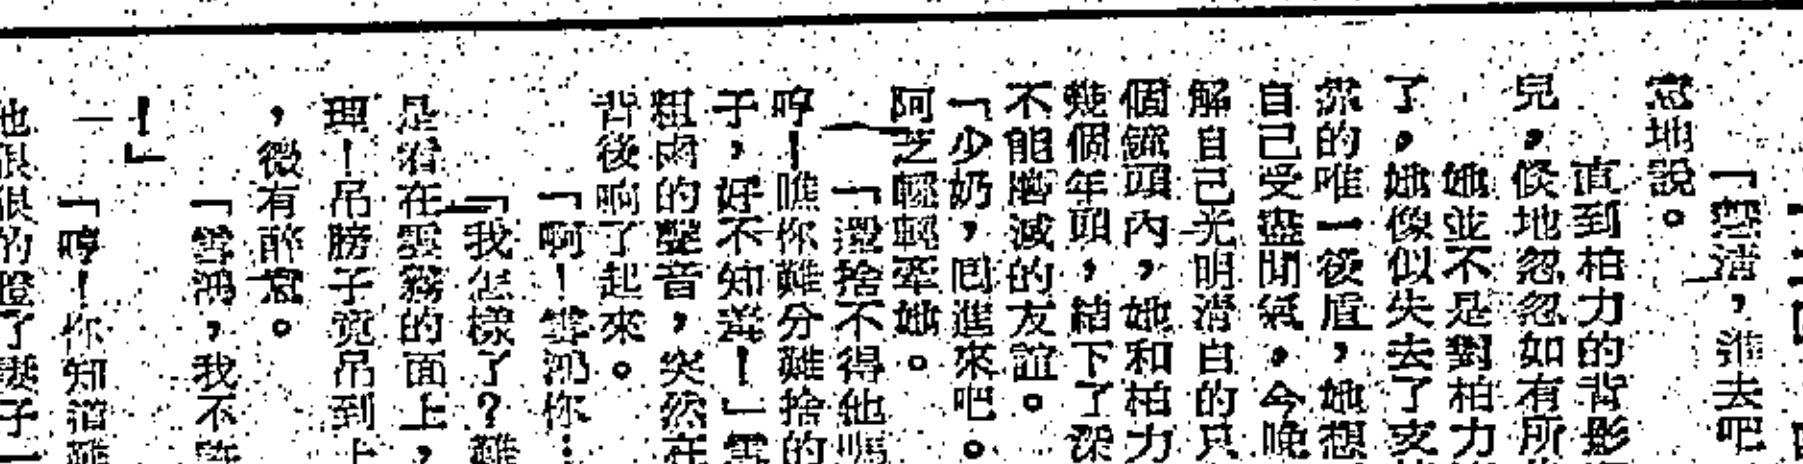 「雲清，進去吧
意地說。
直到柏力的背影
兒，倏地忽忽如有所
她並不是對柏力
了，她像似失去了支
靠的唯一後盾，她想
自己受盡閒氣，今晚
解自己光明清白的只
個鐘頭內，她和柏力
幾個年頭，結下了深
不能磨滅的友誼。
「少奶，囘進來吧。
阿芝輕輕牽她。
「還捨不得他嗎
哼！瞧你難分難捨的
子，好不知羞！」雲
粗鹵的聲音，突然在
背後响了起來。
「啊！雲鴻你…
「我怎樣了？難
是浴在雲霧的面上，
理！吊膀子竟吊到上
，微有醉意。
「雲鴻，我不
！」
「哼！你知道難
他狠狠的瞪了